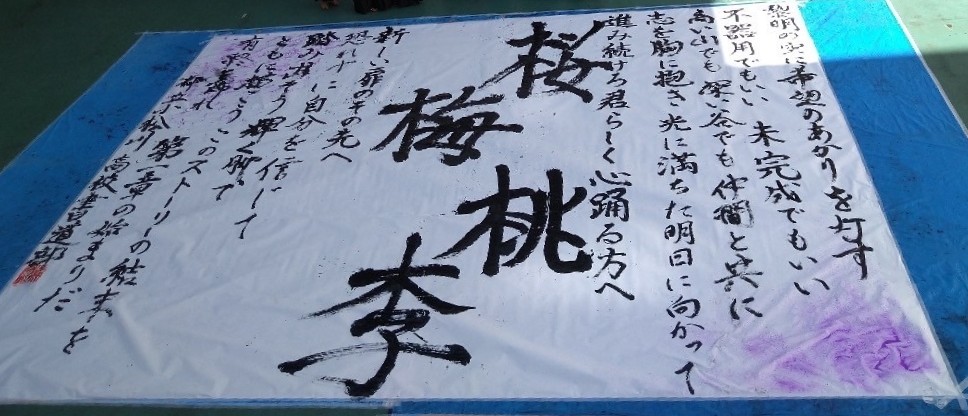 黎明の空に希望のあかりを灯す
不器用でもいい 未完成でもいい
高い山でも 深い谷でも 仲間と共に
志を胸に抱き 光に満ちた明日に向かって
進み続けろ君らしく 心踊る方へ
桜
梅
桃
李
新しい扉のその先へ
恐れずに自分を信じて
踏み出そう
ともに 輝く
このストーリーの結末を
第二章の始まりだ
高校書道部